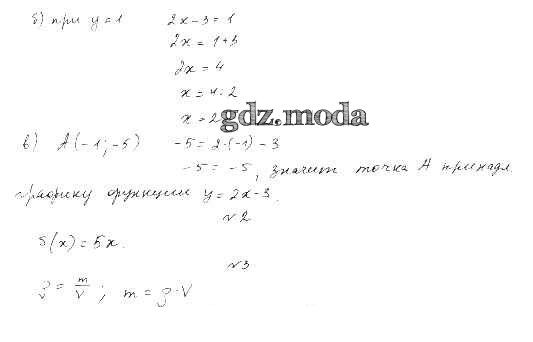 б) при y = 1 2x - 3 = 1
2x = 1 + 3
2x = 4
x = 4 : 2
x = 2
gdz.moda
в) A(-1; -5) -5 = 2·(-1) - 3
-5 = -5, значит точка A принадл.
графику функции y = 2x - 3.
№2
S(x) = 5x.
№3
ρ = m/V ; m = ρ·V